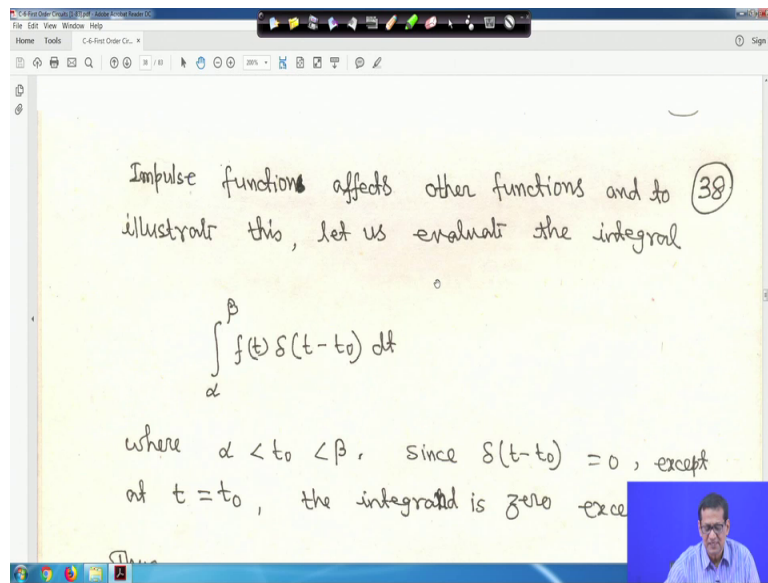 C-6-First Order Circuits (1-83).pdf - Adobe Acrobat Reader DC
File Edit View Window Help
Home Tools C-6-First Order Cir... × Sign
38 / 83 200%
Impulse functions affects other functions and to 38
illustrate this, let us evaluate the integral
β
∫ f(t) δ(t-t0) dt
α
where α < t0 < β. since δ(t-t0) = 0, except
at t = t0, the integrand is zero exce
Thus